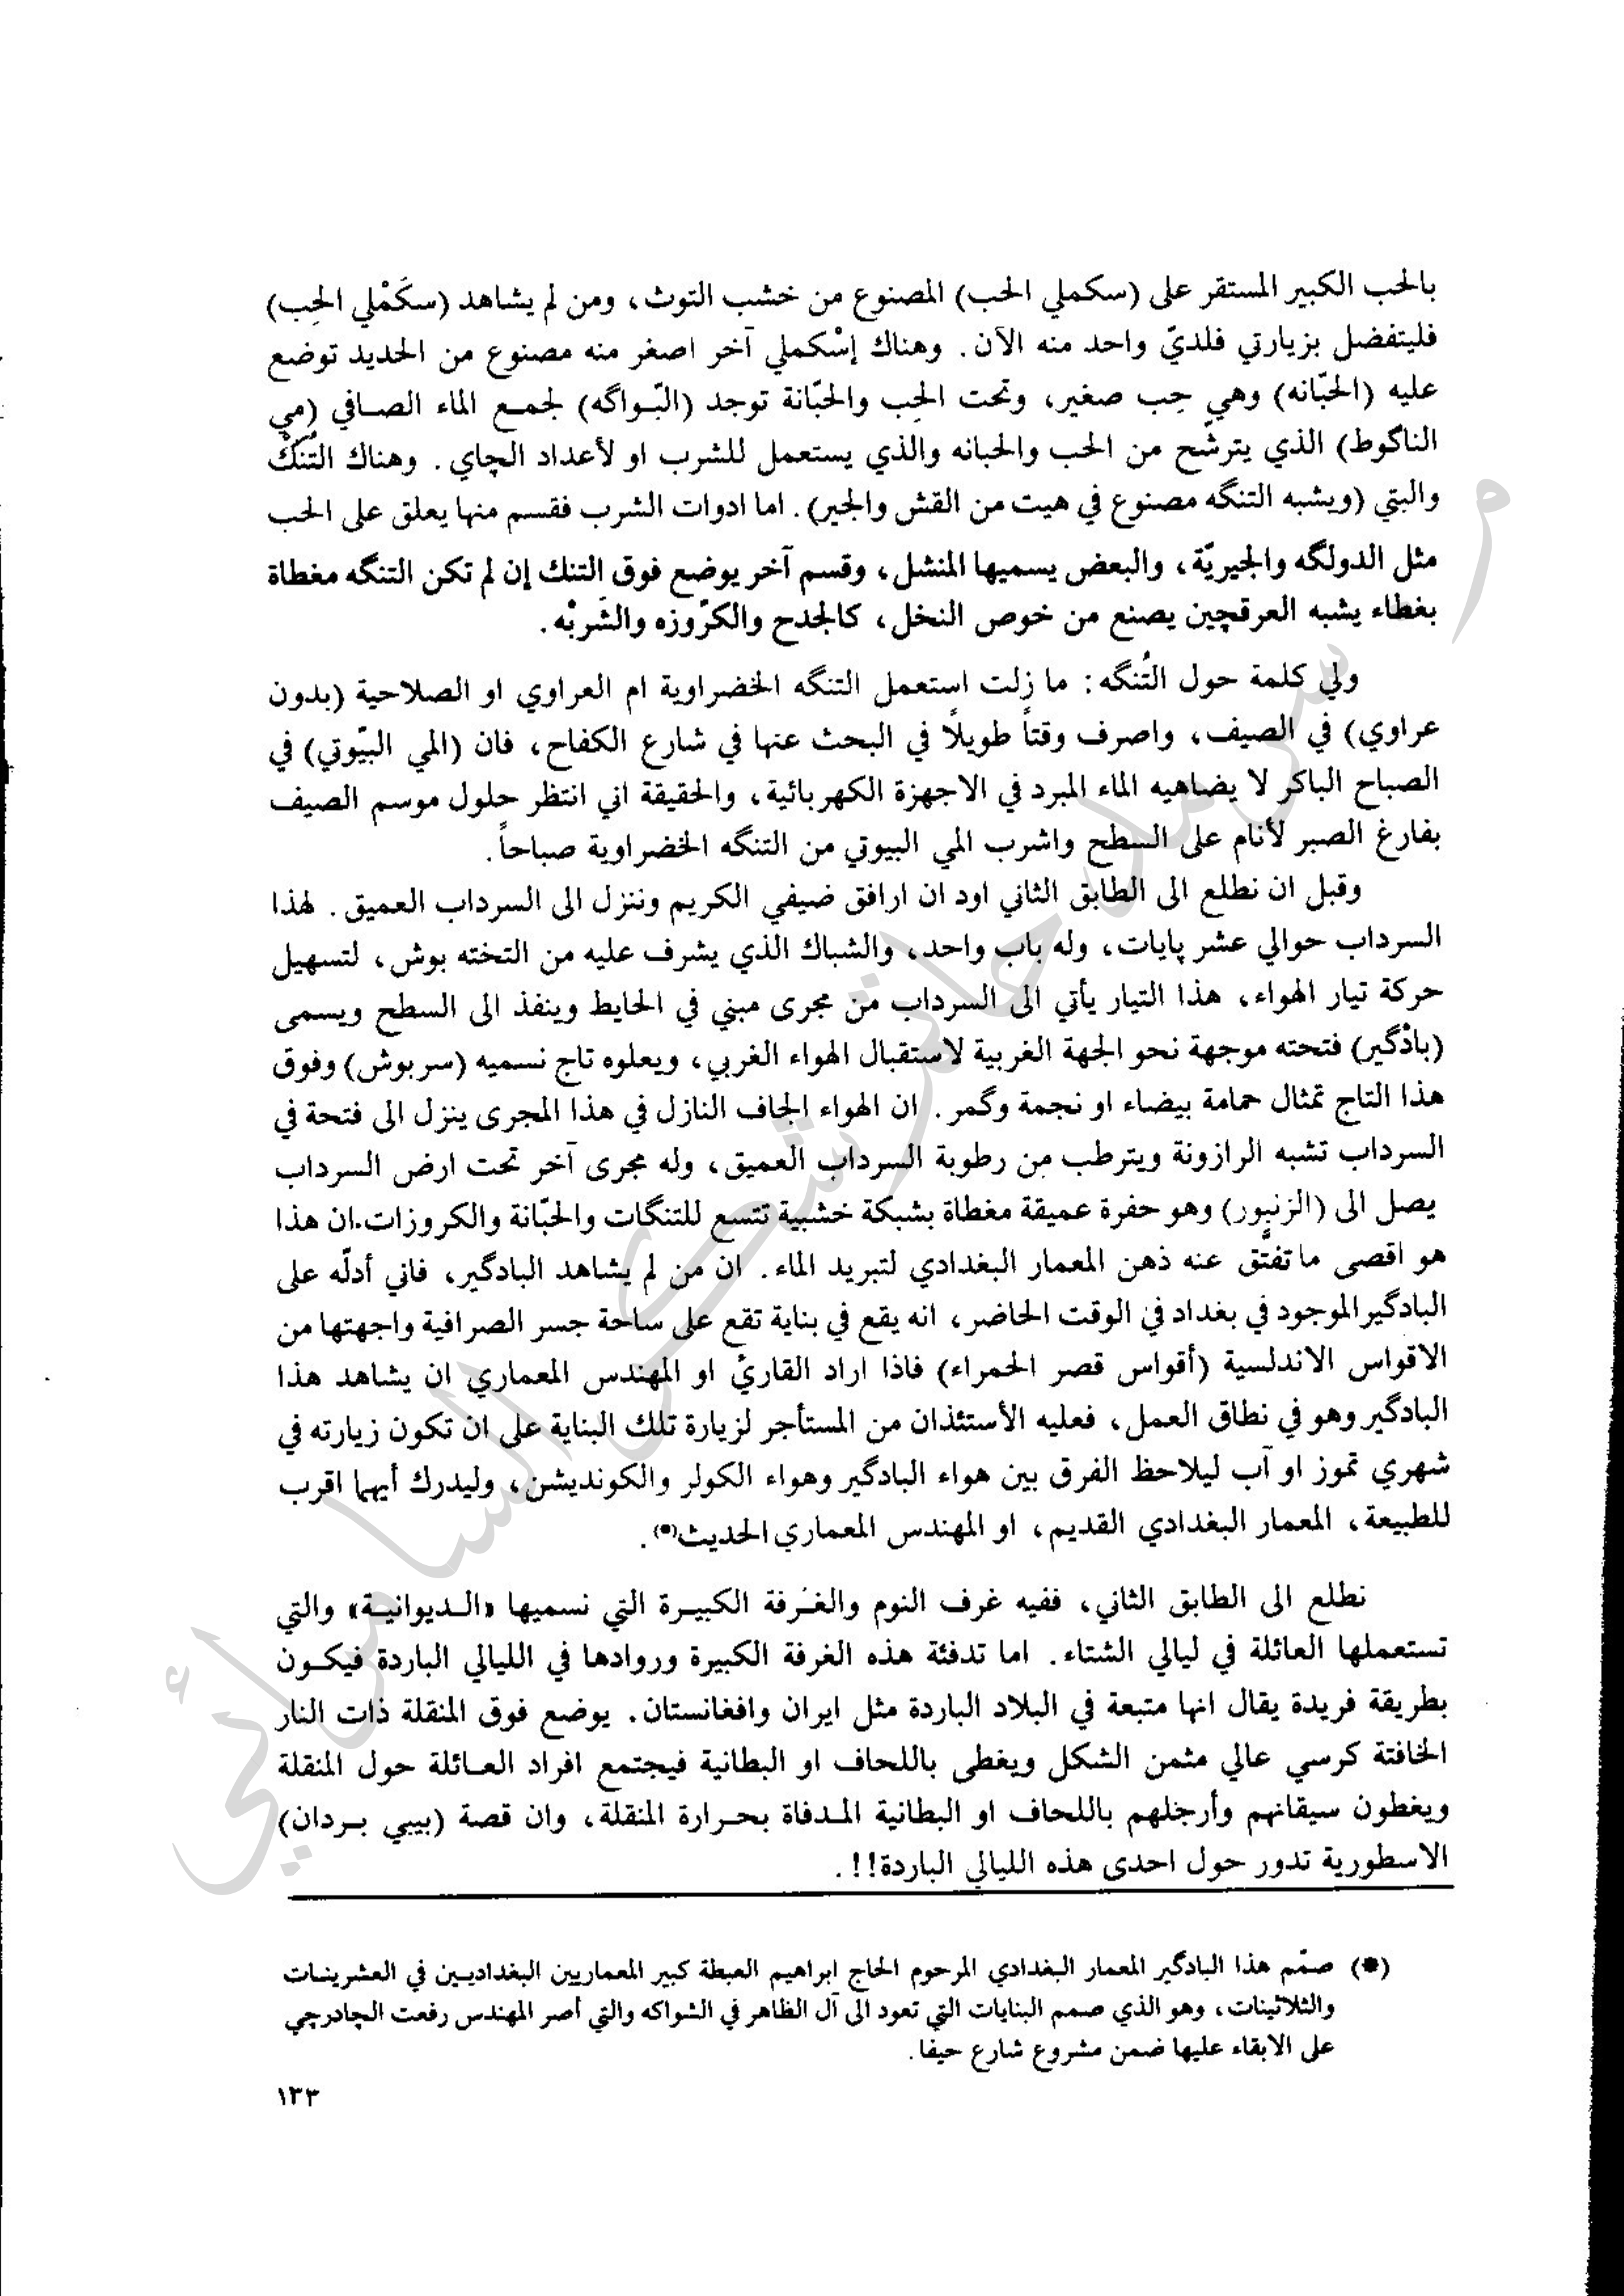 بالحب الكبير المستقر على (سكملي الحب) المصنوع من خشب التوث، ومن لم يشاهد (سكَمْلي الحِب)
فليتفضل بزيارتي فلديّ واحد منه الآن. وهناك إسْكملي آخر اصغر منه مصنوع من الحديد توضع
عليه (الحبّانه) وهي حِب صغير، وتحت الحِب والحبّانة توجد (البّواگه) لجمع الماء الصافي (مي
الناگوط) الذي يترشّح من الحب والحبانه والذي يستعمل للشرب او لأعداد الچاي. وهناك التُنَكْ
والبتي (ويشبه التنگه مصنوع في هيت من القش والجير). اما ادوات الشرب فقسم منها يعلق على الحب
مثل الدولگه والجيريّة، والبعض يسميها المنشل، وقسم آخر يوضع فوق التنك إن لم تكن التنگه مغطاة
بغطاء يشبه العرقچين يصنع من خوص النخل، كالجدح والكرّوزه والشَربْه.
ولي كلمة حول التُنگه: ما زلت استعمل التنگه الخضراوية ام العراوي او الصلاحية (بدون
عراوي) في الصيف، واصرف وقتاً طويلاً في البحث عنها في شارع الكفاح، فان (المي البيّوتي) في
الصباح الباكر لا يضاهيه الماء المبرد في الاجهزة الكهربائية، والحقيقة اني انتظر حلول موسم الصيف
بفارغ الصبر لأنام على السطح واشرب المي البيوتي من التنگه الخضراوية صباحاً.
وقبل ان نطلع الى الطابق الثاني اود ان ارافق ضيفي الكريم وننزل الى السرداب العميق. لهذا
السرداب حوالي عشر پايات، وله باب واحد، والشباك الذي يشرف عليه من التخته بوش، لتسهيل
حركة تيار الهواء، هذا التيار يأتي الى السرداب من مجرى مبني في الحايط وينفذ الى السطح ويسمى
(بادْگير) فتحته موجهة نحو الجهة الغربية لاستقبال الهواء الغربي، ويعلوه تاج نسميه (سربوش) وفوق
هذا التاج تمثال حمامة بيضاء او نجمة وگمر. ان الهواء الجاف النازل في هذا المجرى ينزل الى فتحة في
السرداب تشبه الرازونة ويترطب من رطوبة السرداب العميق، وله مجرى آخر تحت ارض السرداب
يصل الى (الزنبور) وهو حفرة عميقة مغطاة بشبكة خشبية تتسع للتنگات والحبّانة والكروزات.ان هذا
هو اقصى ما تفتّق عنه ذهن المعمار البغدادي لتبريد الماء. ان من لم يشاهد البادگير، فاني أدلّه على
البادگير الموجود في بغداد في الوقت الحاضر، انه يقع في بناية تقع على ساحة جسر الصرافية واجهتها من
الاقواس الاندلسية (أقواس قصر الحمراء) فاذا اراد القارئ او المهندس المعماري ان يشاهد هذا
البادگير وهو في نطاق العمل، فعليه الأستئذان من المستأجر لزيارة تلك البناية على ان تكون زيارته في
شهري تموز او آب ليلاحظ الفرق بين هواء البادگير وهواء الكولر والكونديشن، وليدرك أيهما اقرب
للطبيعة، المعمار البغدادي القديم، او المهندس المعماري الحديث(*).
نطلع الى الطابق الثاني، ففيه غرف النوم والغرفة الكبيرة التي نسميها «الديوانية» والتي
تستعملها العائلة في ليالي الشتاء. اما تدفئة هذه الغرفة الكبيرة وروادها في الليالي الباردة فيكون
بطريقة فريدة يقال انها متبعة في البلاد الباردة مثل ايران وافغانستان. يوضع فوق المنقلة ذات النار
الخافتة كرسي عالي مثمن الشكل ويغطى باللحاف او البطانية فيجتمع افراد العائلة حول المنقلة
ويغطون سيقانهم وأرجلهم باللحاف او البطانية المدفاة بحرارة المنقلة، وان قصة (بيبي بردان)
الاسطورية تدور حول احدى هذه الليالي الباردة!!.
(*) صمّم هذا البادگير المعمار البغدادي المرحوم الحاج ابراهيم العبطة كبير المعماريين البغداديين في العشرينات
والثلاثينات، وهو الذي صمم البنايات التي تعود الى آل الظاهر في الشواكه والتي أصر المهندس رفعت الچادرچي
على الابقاء عليها ضمن مشروع شارع حيفا.
١٣٣